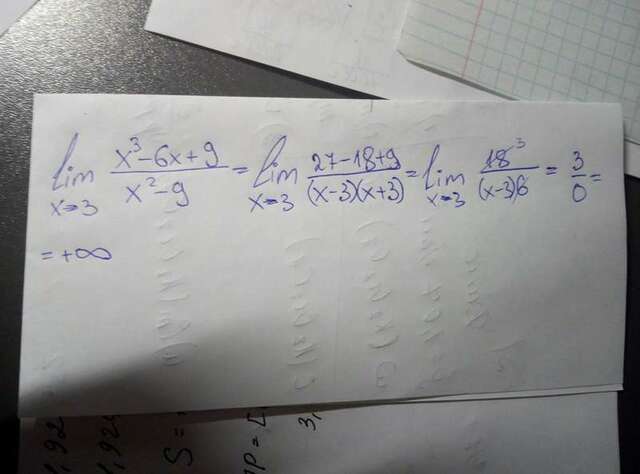 lim x→3 (x³-6x+9)/(x²-9) = lim x→3 (27-18+9)/((x-3)(x+3)) = lim x→3 18³/((x-3)6) = 3/0 =
= +∞
1,92
1,92
S =
3,